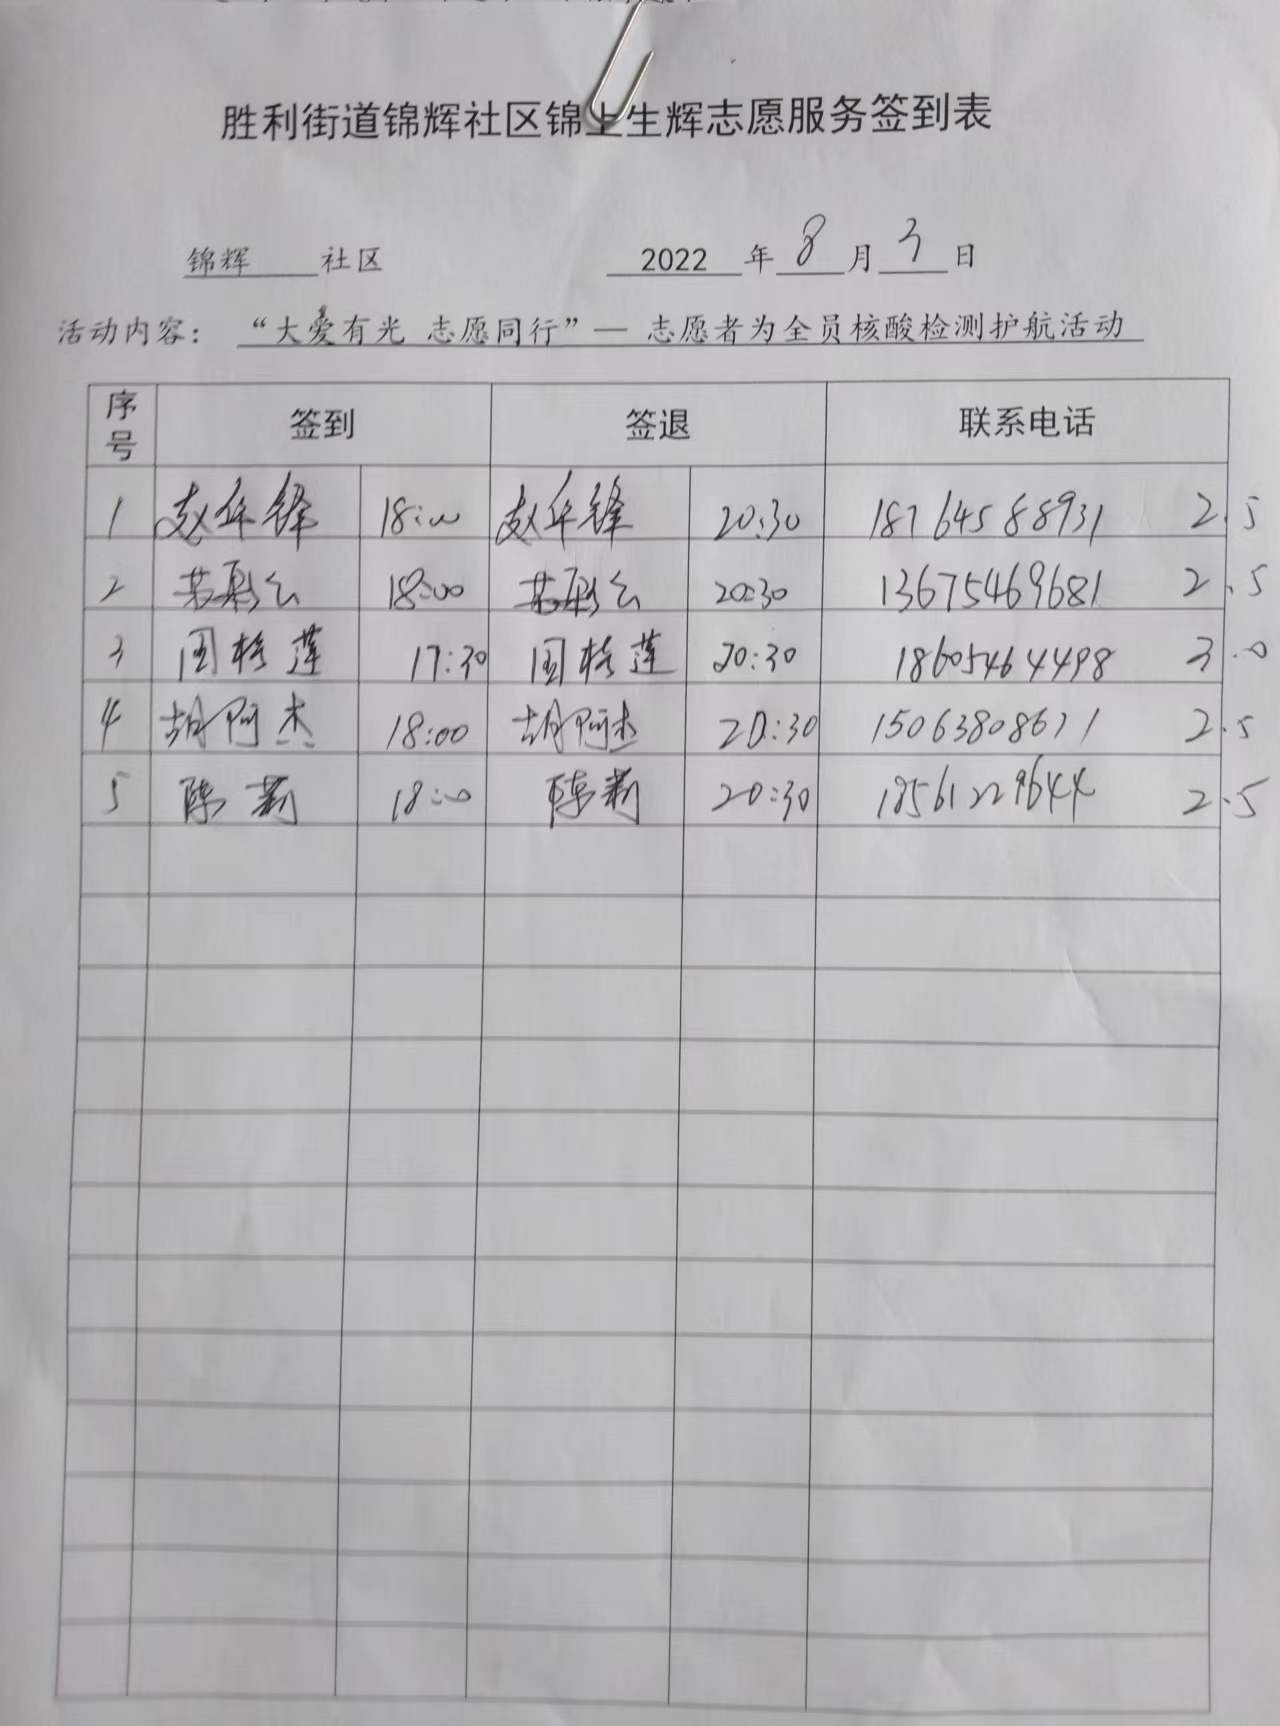 胜利街道锦辉社区锦上生辉志愿服务签到表
锦辉 社区 2022 年 8 月 3 日
活动内容： “大爱有光 志愿同行”— 志愿者为全员核酸检测护航活动
序号 签到 签退 联系电话
1 赵年锋 18:00 赵年锋 20:30 18764588931 2.5
2 18:00 20:30 13675469681 2.5
3 周格莲 17:30 周格莲 20:30 18605464498 3.0
4 胡阿杰 18:00 胡阿杰 20:30 15063808671 2.5
5 陈莉 18:00 陈莉 20:30 18561229644 2.5